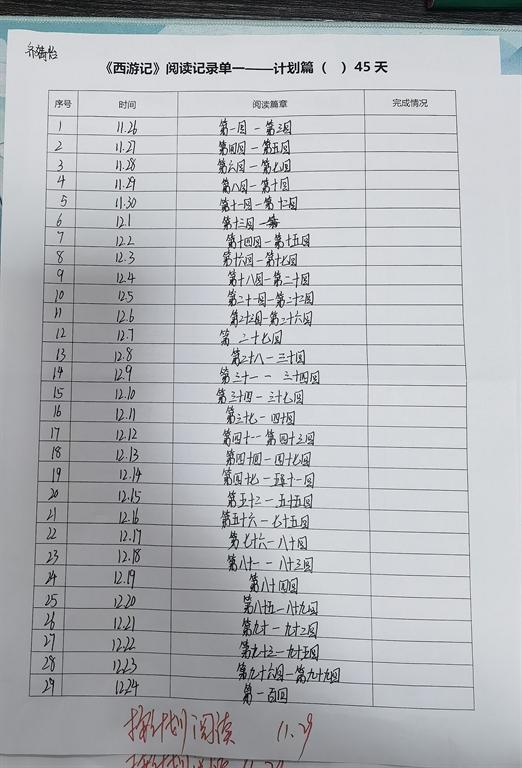 《西游记》阅读记录单一——计划篇（ ）45天
序号 时间 阅读篇章 完成情况
1 11.26 第一回-第三回
2 11.27 第四回-第五回
3 11.28 第六回-第七回
4 11.29 第八回-第十回
5 11.30 第十一回-第十二回
6 12.1 第十三回
7 12.2 第十四回-第十五回
8 12.3 第十六回-第十七回
9 12.4 第十八回-第二十回
10 12.5 第二十一回-第二十二回
11 12.6 第二十三回-第二十六回
12 12.7 第二十七回
13 12.8 第二十八-三十回
14 12.9 第三十一-三十四回
15 12.10 第三十四-三十七回
16 12.11 第三十七-四十回
17 12.12 第四十一-第四十三回
18 12.13 第四十四回-四十七回
19 12.14 第四十七-五十一回
20 12.15 第五十二-五十五回
21 12.16 第五十六-七十五回
22 12.17 第七十六-八十回
23 12.18 第八十一-八十三回
24 12.19 第八十四回
25 12.20 第八十五-八十九回
26 12.21 第九十-九十二回
27 12.22 第九十三-九十五回
28 12.23 第九十六回-第九十九回
29 12.24 第一百回
按计划阅读 11.29